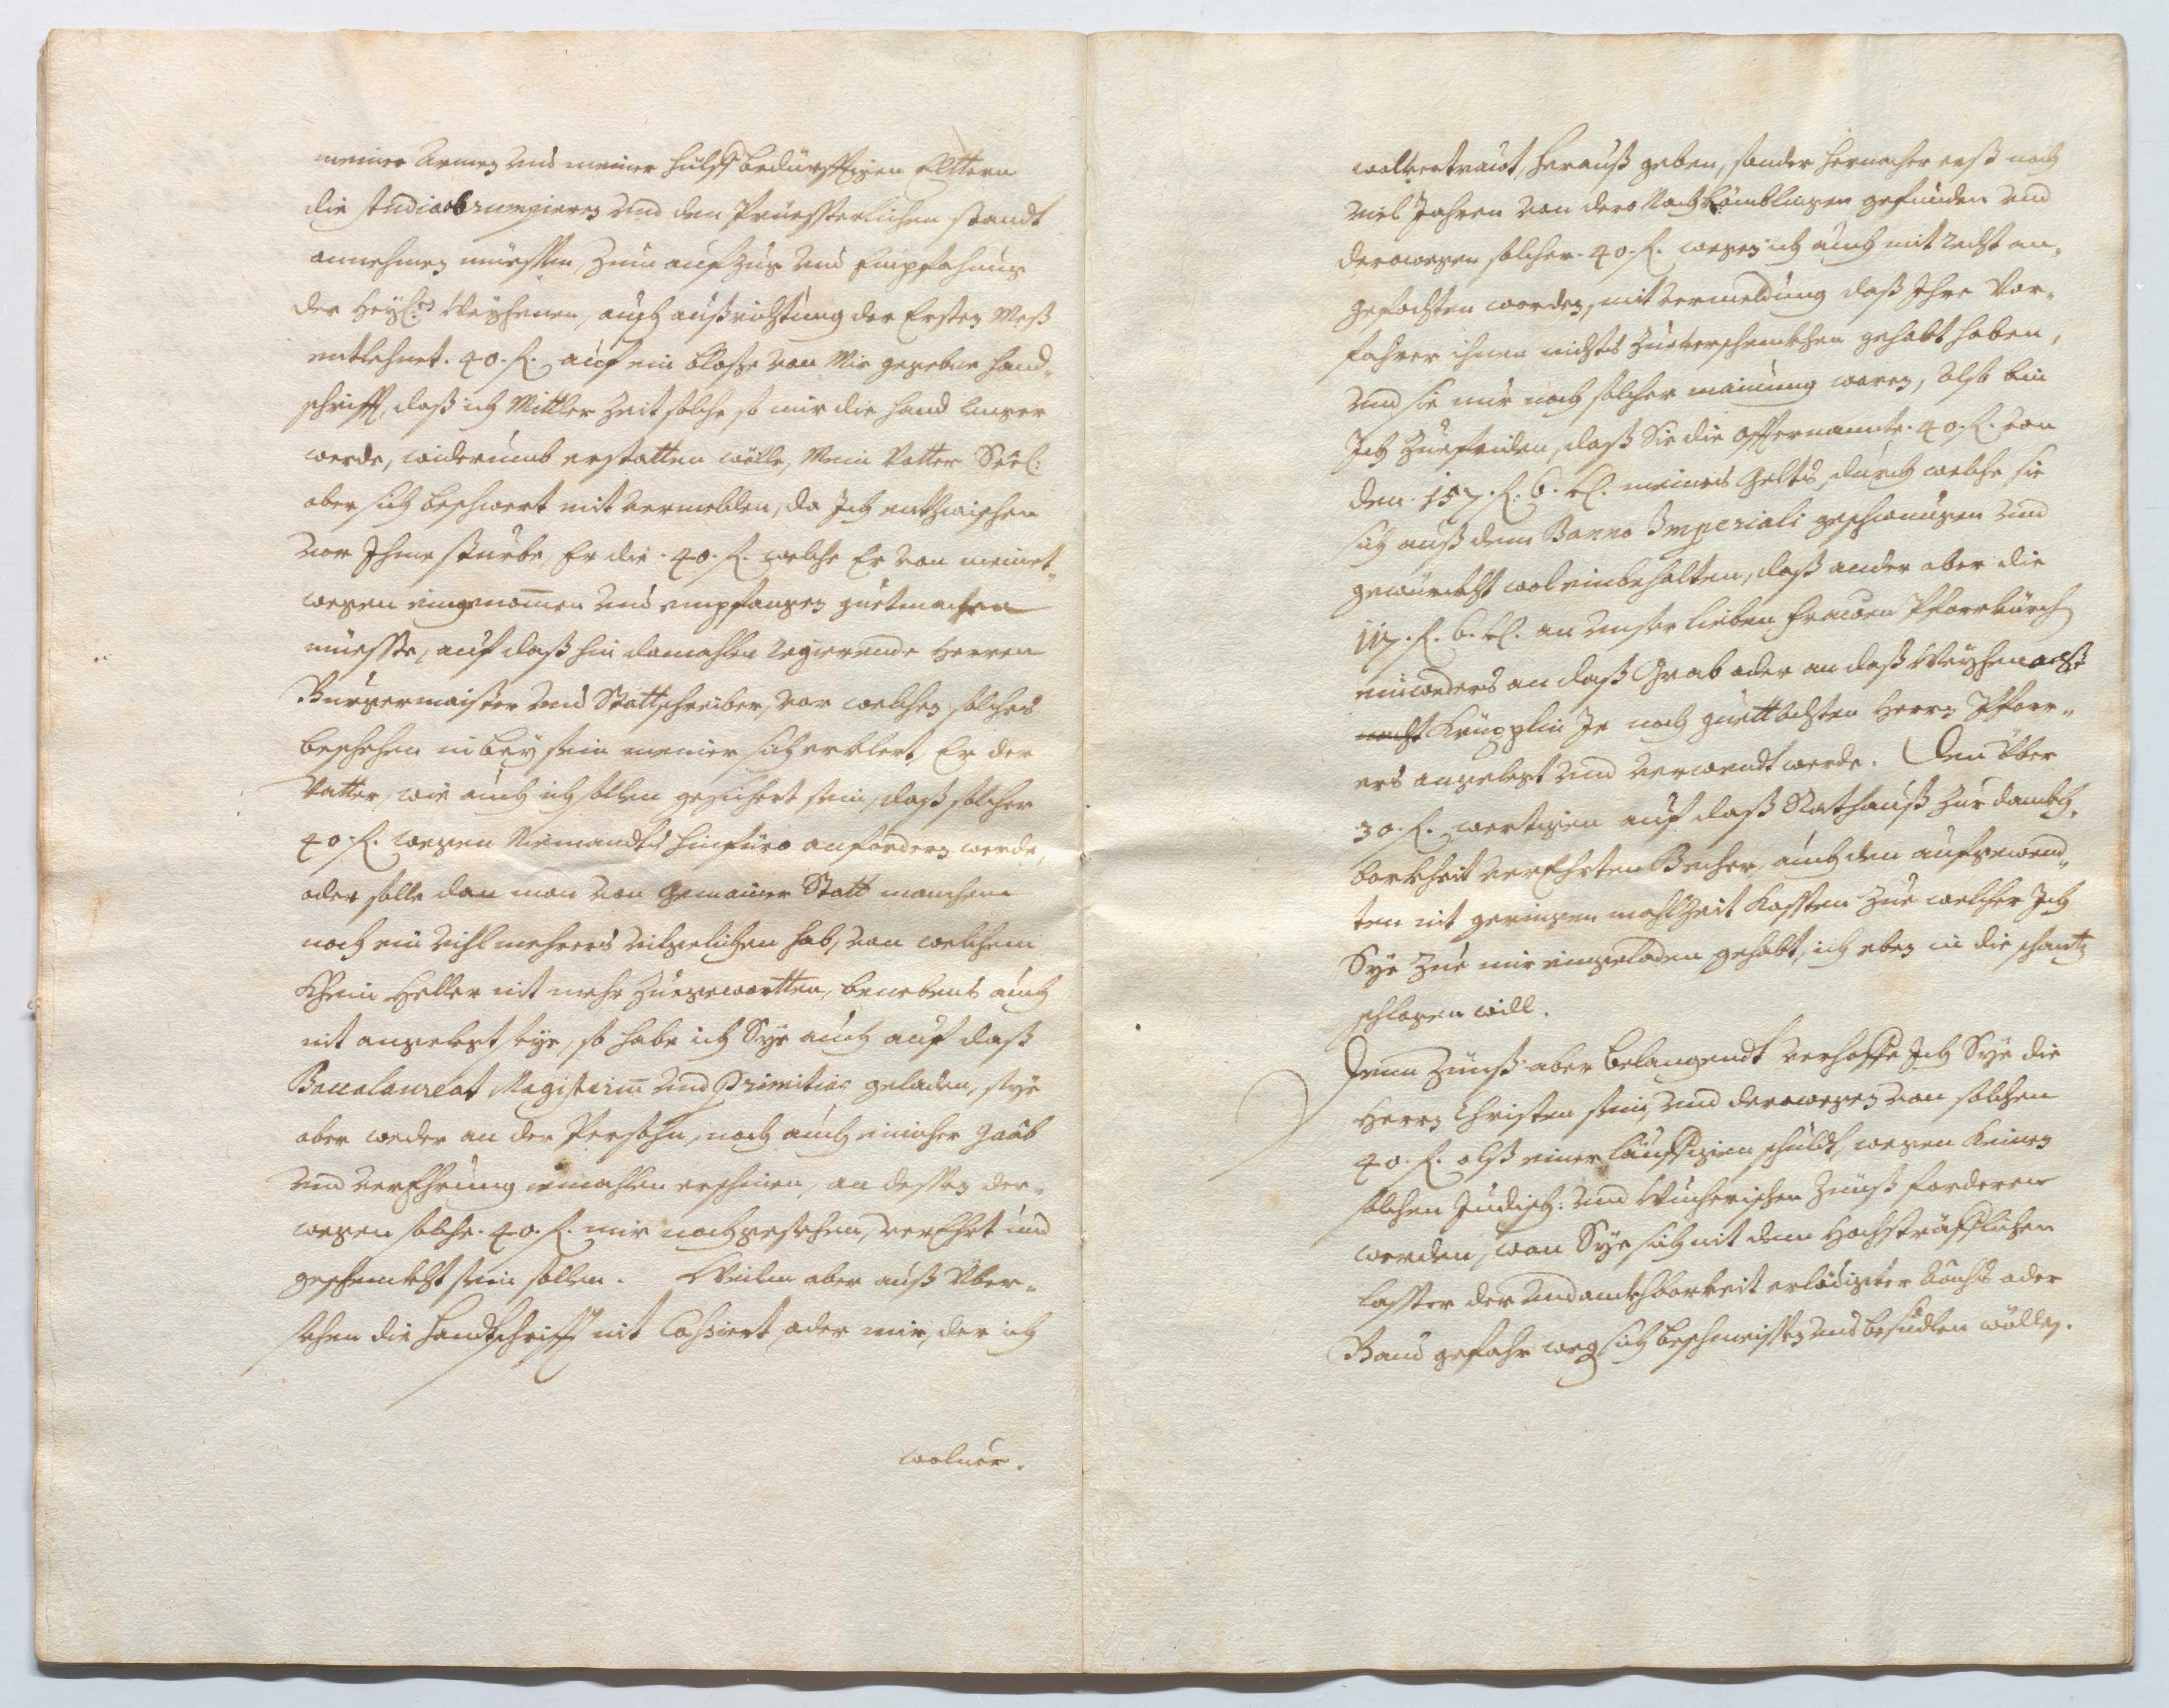 meiner Armen und meiner hülffbedürfftigen Elttern
die studia abrumpieren und den Priesterlichen standt
annehmen müessen, zum aufzug und Empfahung
der Heyl:en Weyhenen, auch außrichtung der Ersten Meß
entlehnet. 40. fl. auf ein blosse von Mir gegebne hand„
schrifft, daß ich Mittler Zeit solche so mir die hand lenger
werde, widerumb erstatten wölle, Mein Vatter Seel:
aber sich beschwert mit vermelden, da Ich entzwischen
vor Ihme sturbe, Er die. 40. fl. welche Er von meinet„
wegen eingenom̄en und empfangen guetmachen
müesste, auf daß hin damahlen regierende Herren
Burgermaister und Stattschreiber, vor welchen solches
beschehen in beysein meiner sich erklert, Er der
Vatter, wie auch ich sollen gesichert sein, daß solcher
40. fl. wegen Niemandts hinfüro anfordern werde,
oder solle dan man von gemainer Statt manchem
noch ein vihl mehrers außgelichen hab, von welchem
Khein Heller nit mehr zuegewartten, benebens auch
nit angelegt seye, so habe ich Sye auch auf daß
Baccalaureat Magisterium und Primitias geladen, seye
aber weder an der Persohn, noch auch einicher gaab
und verEhrung iemahlen erschinen, an dessen der„
wegen solche. 40. fl. mir nachgesehen, verEhrt und
geschenckht sein sollen. Weilen aber auß Über„
sehen die handtschrifft nit Cassiert, oder mir, der ich
wolver.
wolvertraut, herauß geben, sonder hernacher erst nach
viel Jahren von dero Nachkömblingen gefunden und
derowegen solcher. 40. fl. wegen ich auch mit recht an„
gefochten worden, mit vermeldung daß Ihre Vor„
fahrer ihnen nichts zueverschenckhen gehabt haben,
und sie nur nach solcher mainung waren, Alß bin
Ich zuefriden, daß Sie die offternannte. 40. fl. von
den. 157. fl. 6. kl. meines Gelts, durch welche sie
sich auß dem Banno Imperiali geschwungen und
gewürckht wol einbehalten, daß ander aber die
117. fl. 6. kl. an unser lieben frawen Pfarrkürch
eintweders an daß Grab oder an daß Weyhenacht
nacht Krüpplin Je nach guettachten Herrn Pfarr„
ers angelegt und verwendt werde. Den Über
30. fl. wertigen auf daß Rathauß zur danckh„
barkheit verEhrten Becher, auch den aufgewend„
ten nit geringen mahlzeit Kossten zue welcher Ich
Sye zue mir eingeladen gehabt, ich eben in die schantz
schlagen will.
Denn Zünß aber belangendt verhoffe Ich Sye die
Herrn Christen sein, und derowegen von solchen
40. fl. alß einer lauffigen schuldt, wegen keinen
solchen Judisch: und Wucherischen Zünß forderen
werden, wan Sye sich nit dem Hochsträfflichen
lasster der undanckhbarkeit erledigter Auchts oder
Band gefahr wegen sich beschmeissen und besudlen wöllen.